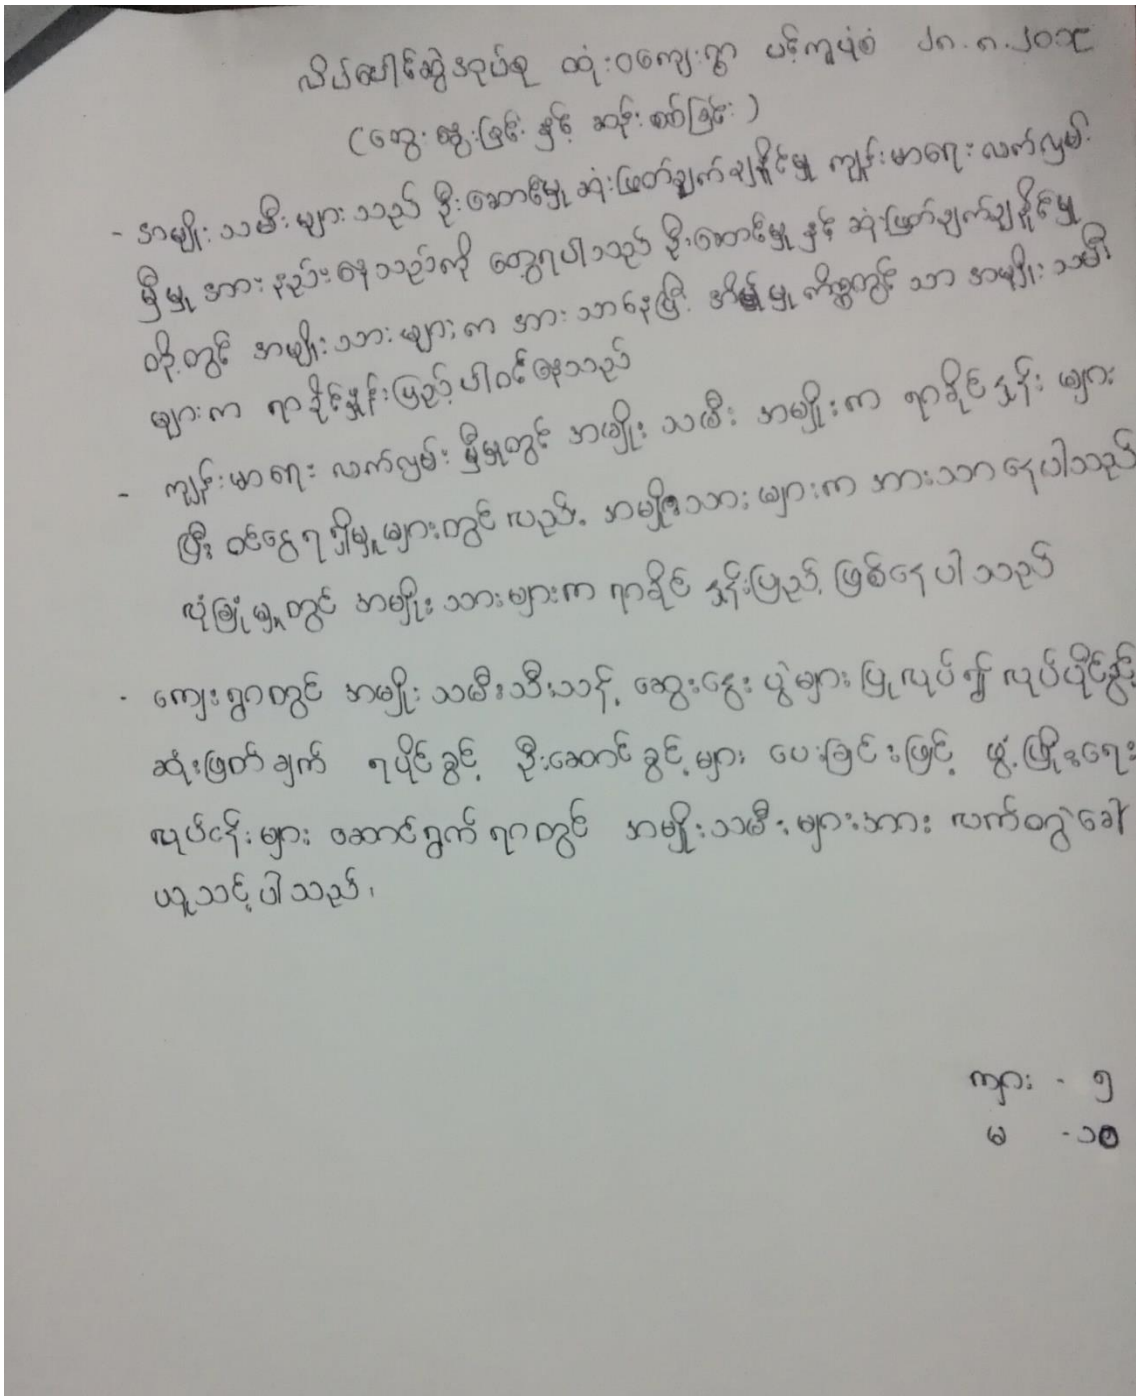 လိပ်ပေါင်ဆွဲအုပ်စု ထုံးဝကျေးရွာ ပင့်ကူပုံစံ ၂၈.၈.၂၀၁၉
(တွေးဆွေးခြင်း နှင့် ဆန်းစစ်ခြင်း)
- အမျိုးသမီးများသည် ဦးဆောင်မှု ဆုံးဖြတ်ချက်ချနိုင်မှု ကျန်းမာရေးလက်လှမ်း
မှီမှု အားနည်းနေသည်ကို တွေ့ရပါသည် ဦးဆောင်မှု နှင့် ဆုံးဖြတ်ချက်ချနိုင်မှု
တို့တွင် အမျိုးသားများက အားသာနေပြီး အိမ်မှုကိစ္စတွင် သာ အမျိုးသမီး
များက ရာခိုင်နှုန်းပြည့်ပါဝင်နေသည်
- ကျန်းမာရေး လက်လှမ်းမှီမှုတွင် အမျိုးသမီး အမျိုးက ရာခိုင်နှုန်း များ
ပြီး ဝင်ငွေရရှိမှုများတွင်လည်း အမျိုးသားများက အားသာနေပါသည်
လုံခြုံမှုတွင် အမျိုးသားများက ရာခိုင်နှုန်းပြည့် ဖြစ်နေပါသည်
- ကျေးရွာတွင် အမျိုးသမီးသီးသန့် ဆွေးနွေးပွဲများ ပြုလုပ်၍ လုပ်ပိုင်ခွင့်
ဆုံးဖြတ်ချက် ရပိုင်ခွင့် ဦးဆောင်ခွင့်များ ပေးခြင်းဖြင့် ဖွံ့ဖြိုးရေး
လုပ်ငန်းများ ဆောင်ရွက်ရာတွင် အမျိုးသမီးများအား လက်တွဲခေါ်
ယူသင့်ပါသည်၊
ကျား - ၅
မ - ၁၀